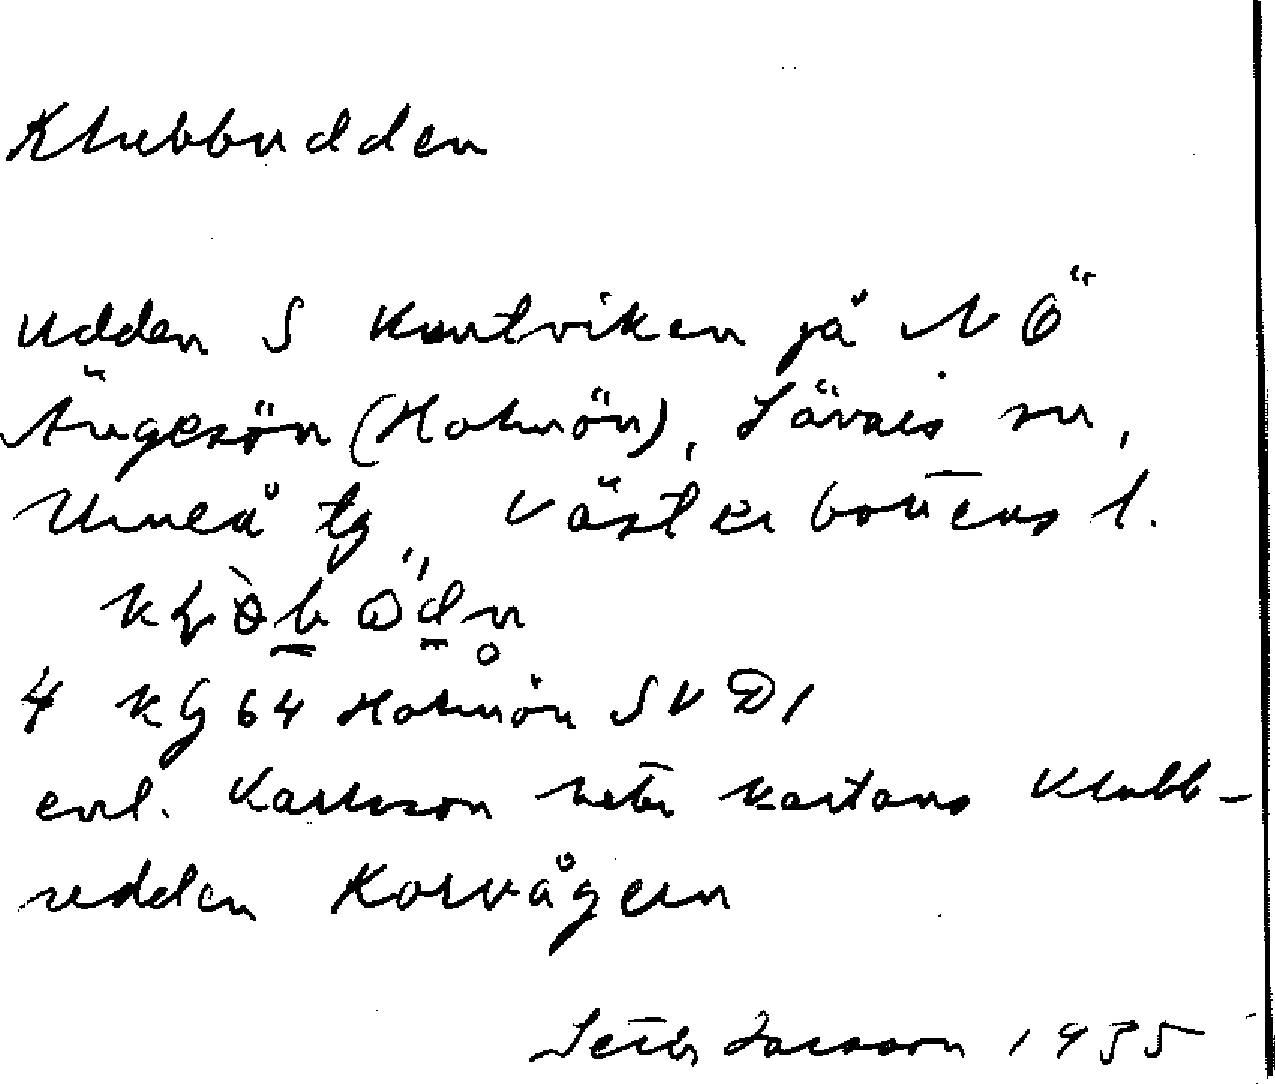 Klubbudden
Udden S Kuntviken på NÖ
Ängesön (Holmön), Sävars sn,
Umeå tg Västerbottens l.
4 Kg 64 Holmön SV D1
enl. Karlsson heter kartans Klubb-
udden Korvågern
Seth Larsson 1935